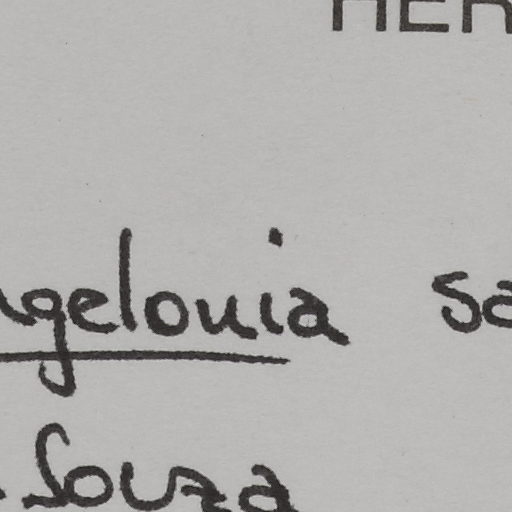 HER
ngelonia sa
. Souza